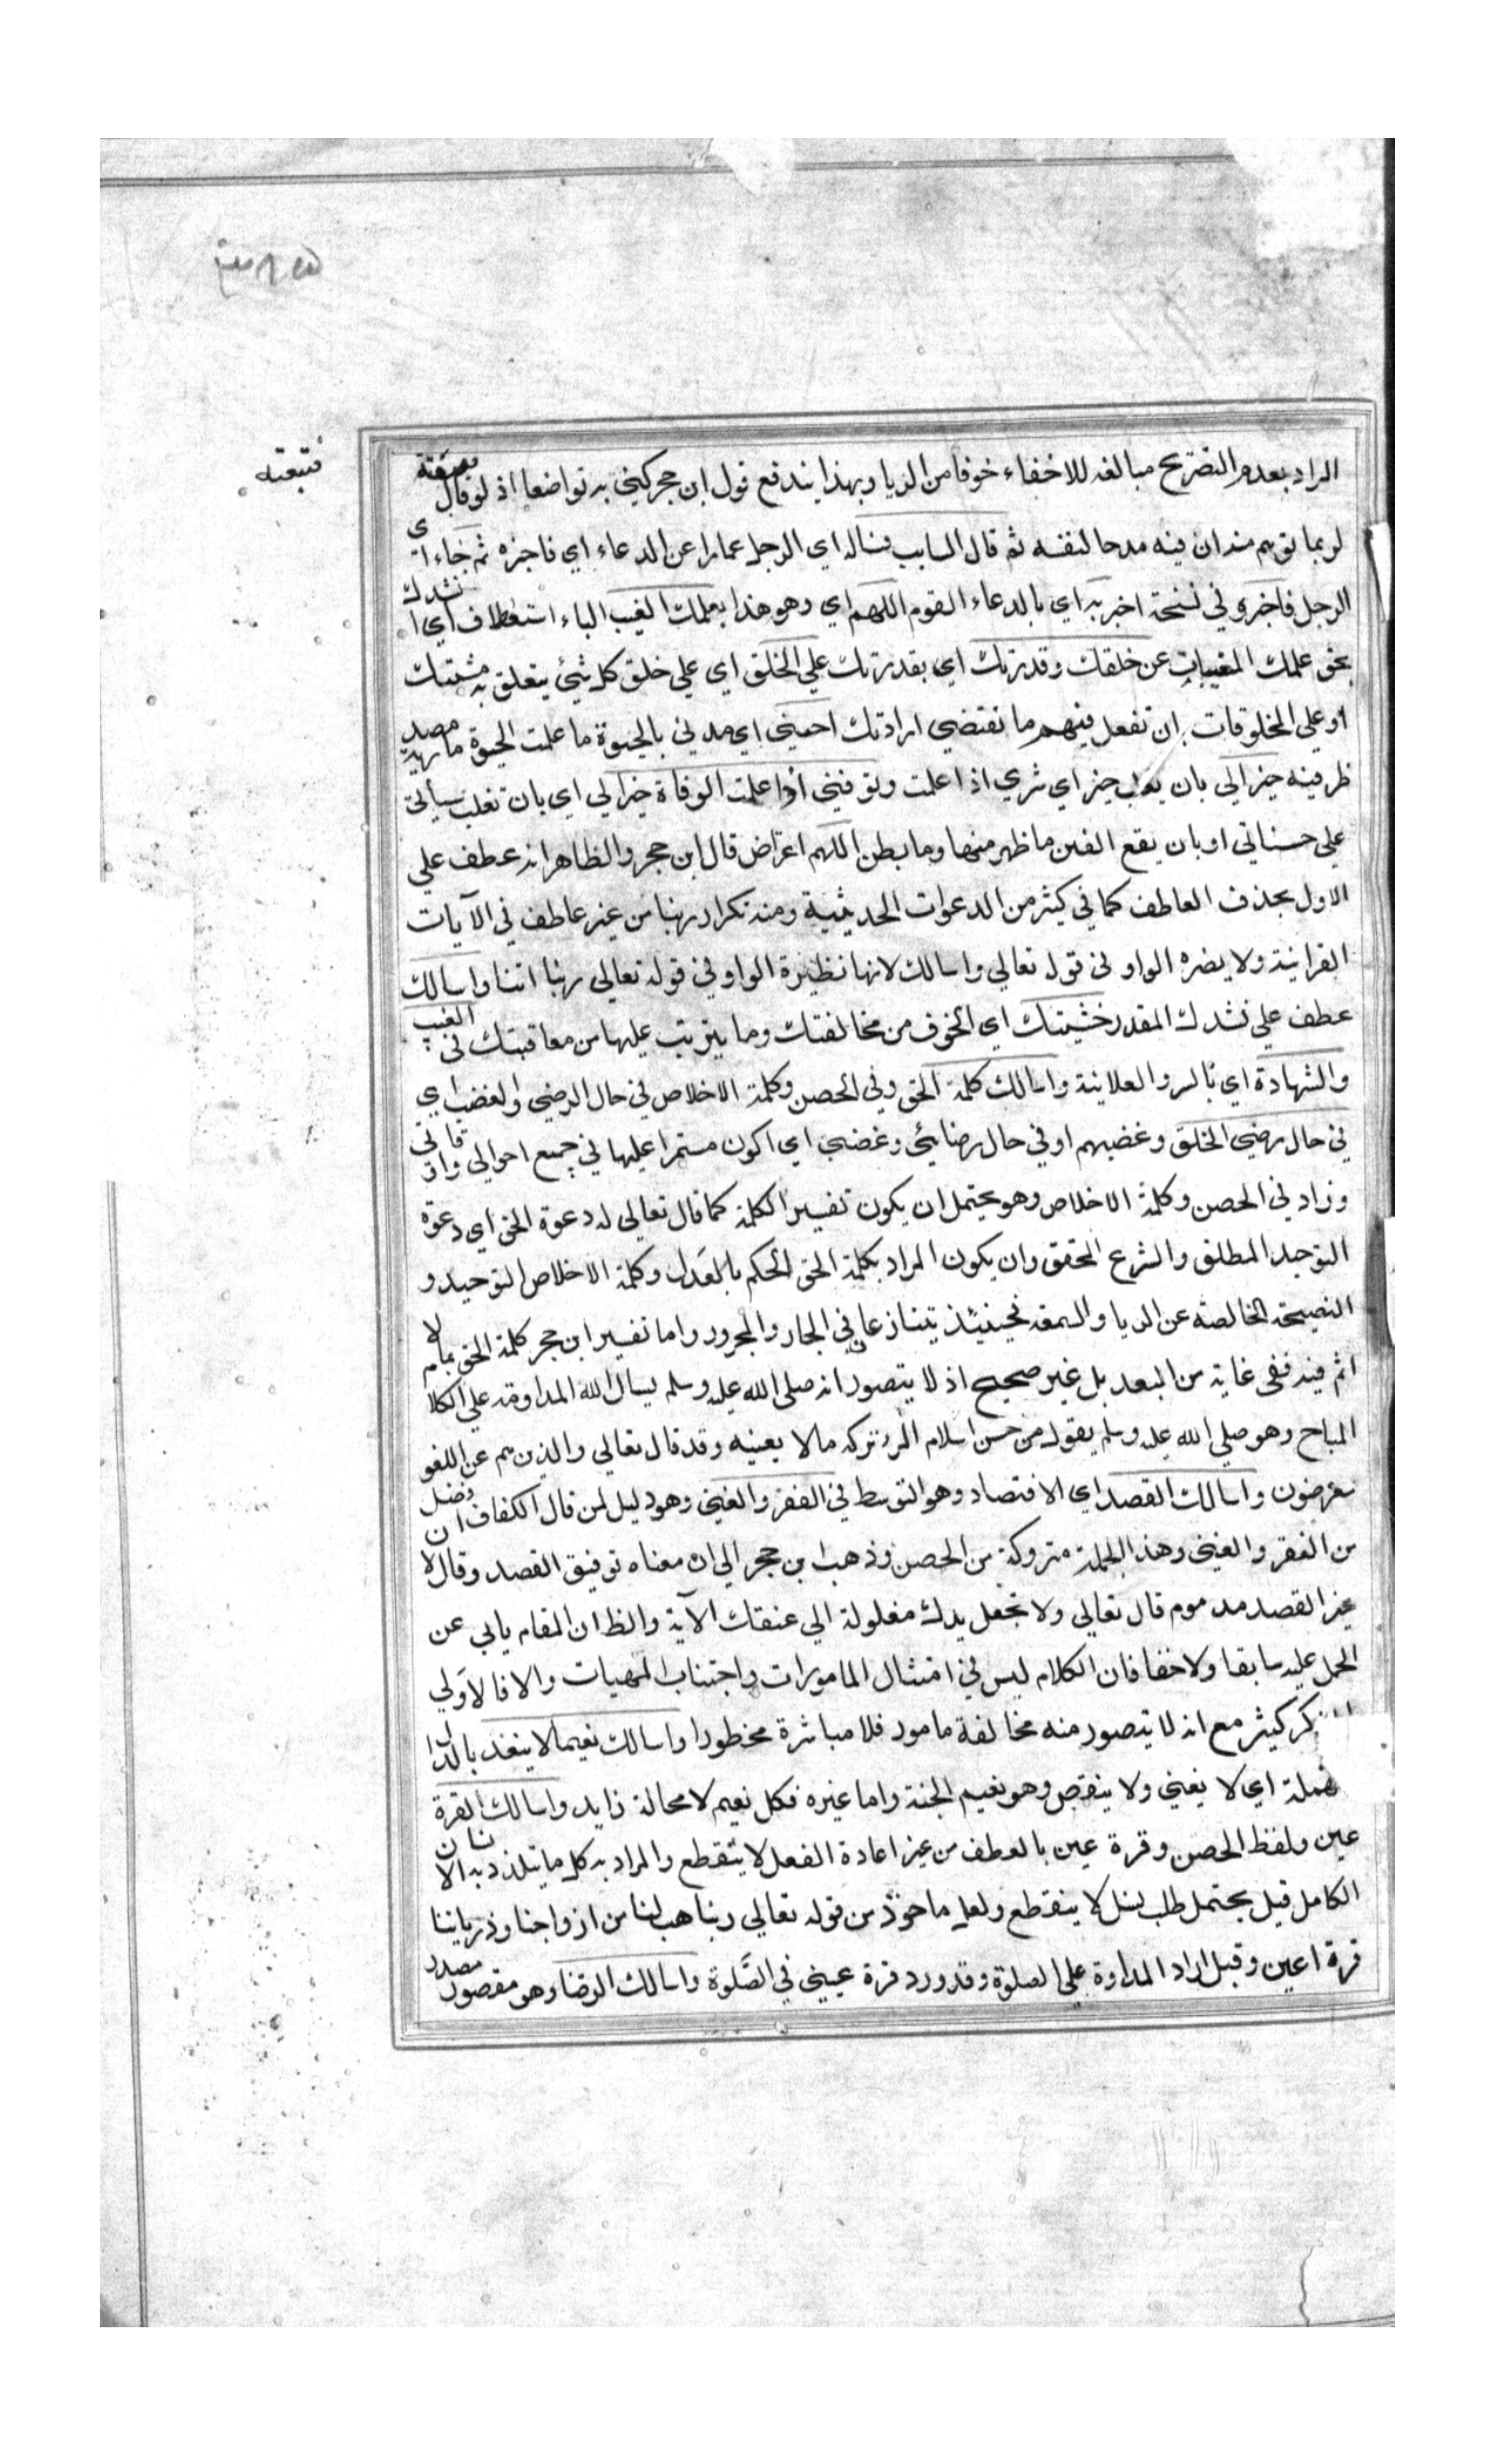 فتبعته
المراد بعدم التصريح مبالغة للاخفاء خوفا من الريا وبهذا يندفع قول ابن حجر كنى به تواضعا اذ لو قال فتبعته
لربما توهم منه ان فيه مدحا لنفسه ثم قال السايب فساله اي الرجل عمارا عن الدعاء اي فاخبره ثم جاء اي
الرجل فاخبر وفي نسخة اخبر به اي بالدعاء القوم اللهم اي وهو هذا بعلمك الغيب الباء استعطاف اي انشدك
بحق علمك المغيبات عن خلقك وقدرتك اي بقدرتك علي الخلق اي علي خلق كل شئ يتعلق به مشيتك
او علي المخلوقات بان تفعل فيهم ما تقتضي ارادتك احيني اي مدني بالحيوة ما علمت الحيوة ما مصدرية
ظرفية خيرا لي بان يغلب خيري اي شري اذا علمت وتوفني اذا علمت الوفاة خيرا لي اي بان تغلب سيأتي
علي حسناتي او بان يقع الفتن ما ظهر منها وما بطن اللهم اعتراض قال ابن حجر والظاهر انه عطف علي
الاول بحذف العاطف كما في كثير من الدعوات الحديثية ومنه تكرار ربنا من غير عاطف في الآيات
القرانية ولا يضره الواو في قوله تعالي واسالك لانها نظيرة الواو في قوله تعالي ربنا اتنا واسالك
عطف علي نشدك المقدر خشيتك اي الخوف من مخالفتك وما يترتب عليها من معاقبتك في الغيب
والشهادة اي بالسر والعلانية واسالك كلمة الحق وفي الحصن وكلمة الاخلاص في حال الرضي والغضب اي
في حال رضي الخلق وغضبهم او في حال رضائي وغضبي اي اكون مستمرا عليها في جميع احوالي واوقاتي
وزاد في الحصن وكلمة الاخلاص وهو يحتمل ان يكون تفسيرا لكلمة كما قال تعالي له دعوة الحق اي دعوة
التوحيد المطلق والشرع المحقق وان يكون المراد بكلمة الحق الحكم بالعدل وكلمة الاخلاص التوحيد و
النصيحة الخالصة عن الريا والسمعة فحينئذ يتنازعان في الجار والمجرور واما تفسير ابن حجر كلمة الحق بما لا
اثم فيه ففي غاية من البعد بل غير صحيح اذ لا يتصور انه صلي الله عليه وسلم يسال الله المداومة علي الكلام
المباح وهو صلي الله عليه وسلم يقول من حسن اسلام المرء تركه ما لا يعنيه وقد قال تعالي والذين هم عن اللغو
معرضون واسالك القصد اي الاقتصاد وهو التوسط في الفقر والغنى وهو دليل لمن قال الكفاف افضل
من الفقر والغنى وهذه الجملة متروكة من الحصن وذهب ابن حجر الي ان معناه توفيق القصد وقال لان
غير القصد مدموم قال تعالي ولا تجعل يدك مغلولة الي عنقك الآية والظ ان المقام يابي عن
الحمل عليه سابقا ولا خفا فان الكلام ليس في امتثال المامورات واجتناب المنهيات والا فالاولي
كثير مع انه لا يتصور منه مخالفة مامور فلا مباشرة محظورا واسالك نعيما لا ينفد بالدال
المهملة اي لا يفني ولا ينقص وهو نعيم الجنة واما غيره فكل نعيم لا محالة زايل واسالك القرة
عين ولفظ الحصن وقرة عين بالعطف من غير اعادة الفعل لا تنقطع والمراد به كل ما يتلذذ به الانسان
الكامل قيل يحتمل طلب نسل لا ينقطع ولعله ماخوذ من قوله تعالي ربنا هب لنا من ازواجنا وذرياتنا
قرة اعين وقيل اراد المداومة علي الصلوة وقد ورد قرة عيني في الصلوة واسالك الرضا وهو مقصور مصدر